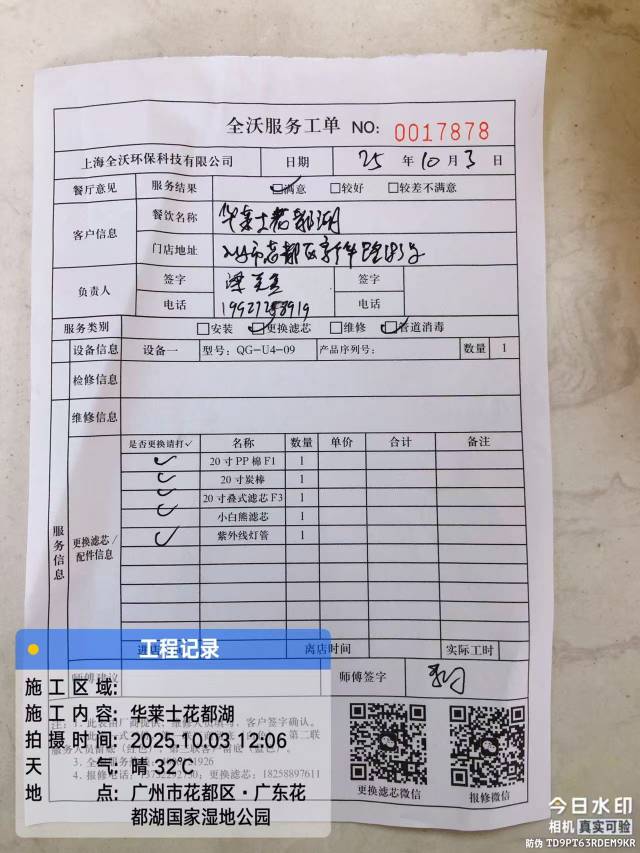 全沃服务工单 NO: 0017878
上海全沃环保科技有限公司 日期 25 年 10 月 3 日
餐厅意见 服务结果 ☑满意 □较好 □较差不满意
客户信息 餐饮名称 华莱士花都湖
门店地址
负责人 签字 签字
电话 电话
服务类别 □安装 ☑更换滤芯 □维修 ☑管道消毒
设备信息 设备一 型号: QG-U4-09 产品序列号: 数量 1
检修信息
维修信息
服务信息
更换滤芯/配件信息
是否更换请打✓ 名称 数量 单价 合计 备注
✓ 20寸PP棉F1 1
✓ 20寸炭棒 1
✓ 20寸叠式滤芯F3 1
✓ 小白熊滤芯 1
✓ 紫外线灯管 1
离店时间 实际工时
师傅签字
更换滤芯微信 报修微信
工程记录
施工区域:
施工内容: 华莱士花都湖
拍摄时间: 2025.10.03 12:06
天气: 晴 32℃
地点: 广州市花都区·广东花都湖国家湿地公园
今日水印
相机 真实可验
防伪 TD9PT63RDEM9KR